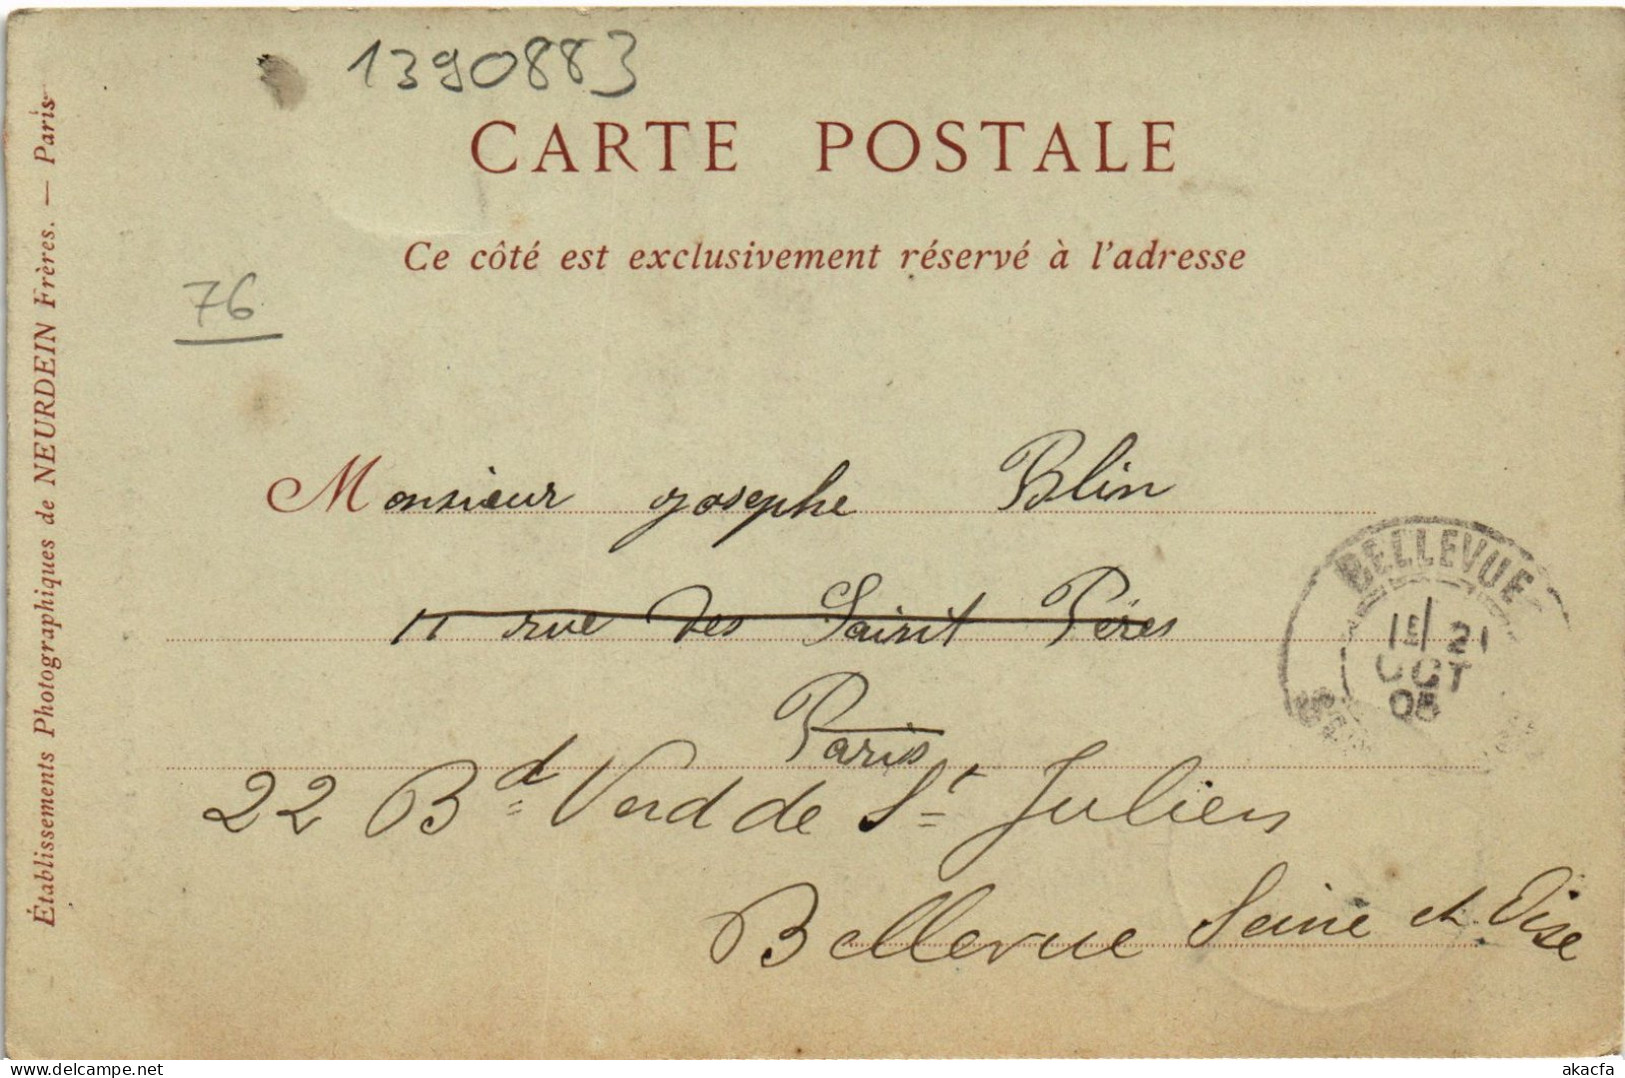 1390883
CARTE POSTALE
Ce côté est exclusivement réservé à l'adresse
76
Établissements Photographiques de NEURDEIN Frères. — Paris
Monsieur Josephe Blin
11 rue des Saint Pères
Paris
22 Bd Verd de St Julien
Bellevue Seine et Oise
BELLEVUE
1E 21
OCT
05
akacfa